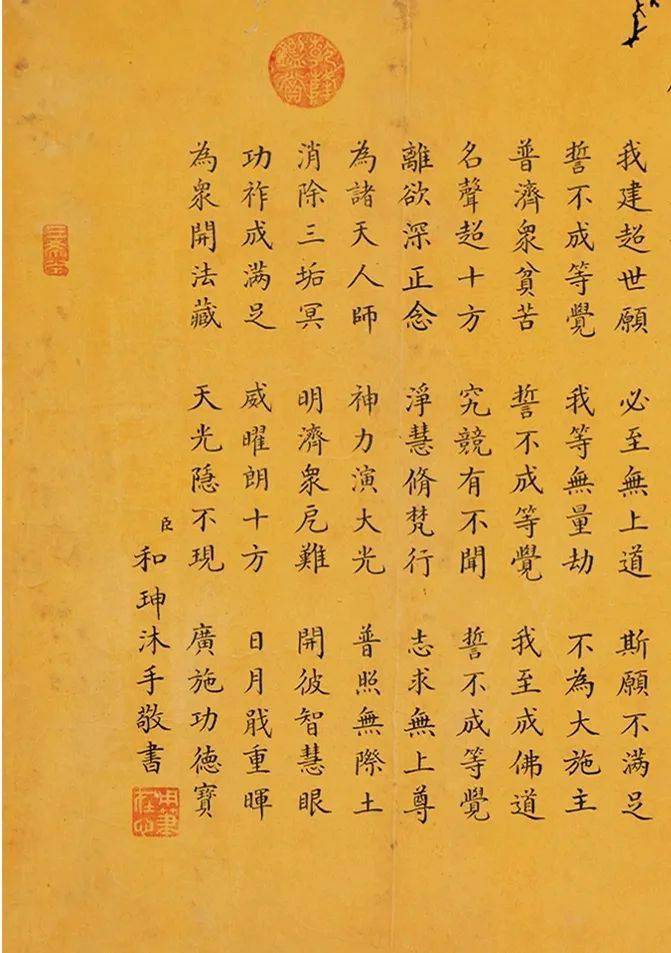 乾隆鑑賞
我建超世願 必至無上道 斯願不滿足
誓不成等覺 我等無量劫 不為大施主
普濟衆貧苦 誓不成等覺 我至成佛道
名聲超十方 究競有不聞 誓不成等覺
離欲深正念 淨慧脩梵行 志求無上尊
為諸天人師 神力演大光 普照無際土
消除三垢冥 明濟衆厄難 開彼智慧眼
功祚成滿足 威曜朗十方 日月戢重暉
為衆開法藏 天光隱不現 廣施功德寶
臣和珅沐手敬書
用筆在心
三希堂